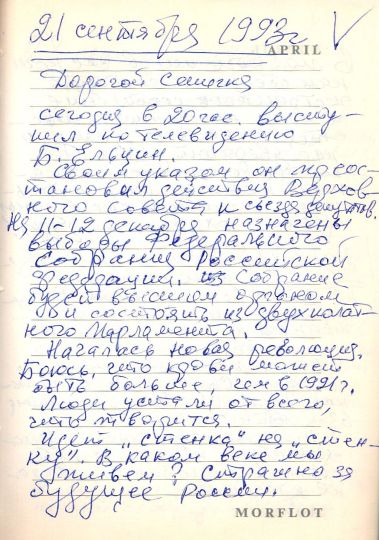 21 сентября 1993г. V
APRIL
Дорогой Сенечка
сегодня в 20 час. высту-
пил по телевидению
Б. Ельцин.
Своим указом он приос-
тановил действия Верхов-
ного Совета и съезда депутатов.
На 11-12 декабря назначены
выборы Федерального
Собрания Российской
Федерации. Собрание
будет высшим органом
и состоять из двухпалат-
ного Парламента.
Началась новая революция.
Боюсь, что крови может
быть больше, чем в 1991 г.
Люди устали от всего,
что творится.
Идет „стенка" на „стен-
ку". В каком веке мы
живем? Страшно за
будущее России.
MORFLOT